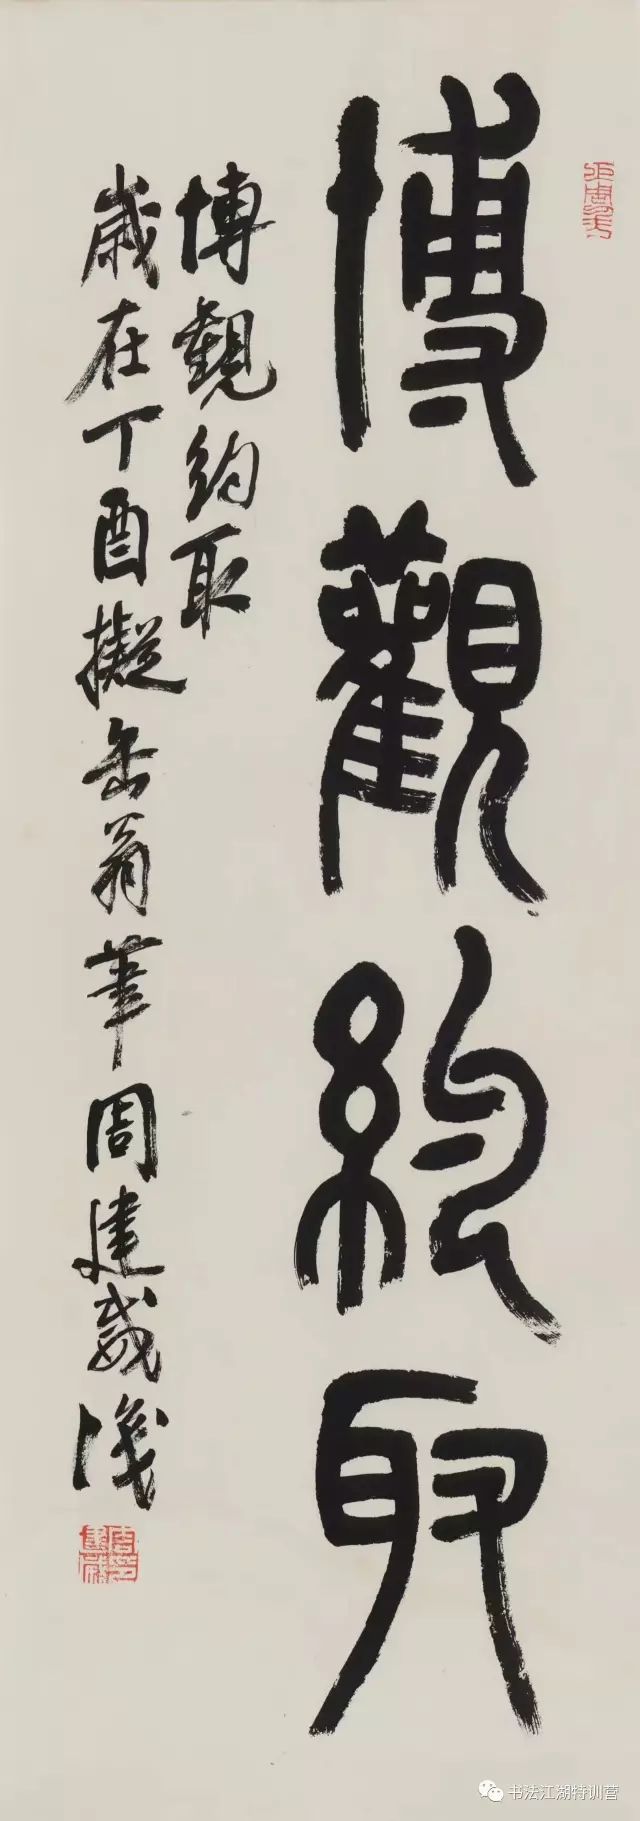 博觀約取
博觀約取
歲在丁酉擬缶翁筆周建威識
书法江湖特训营